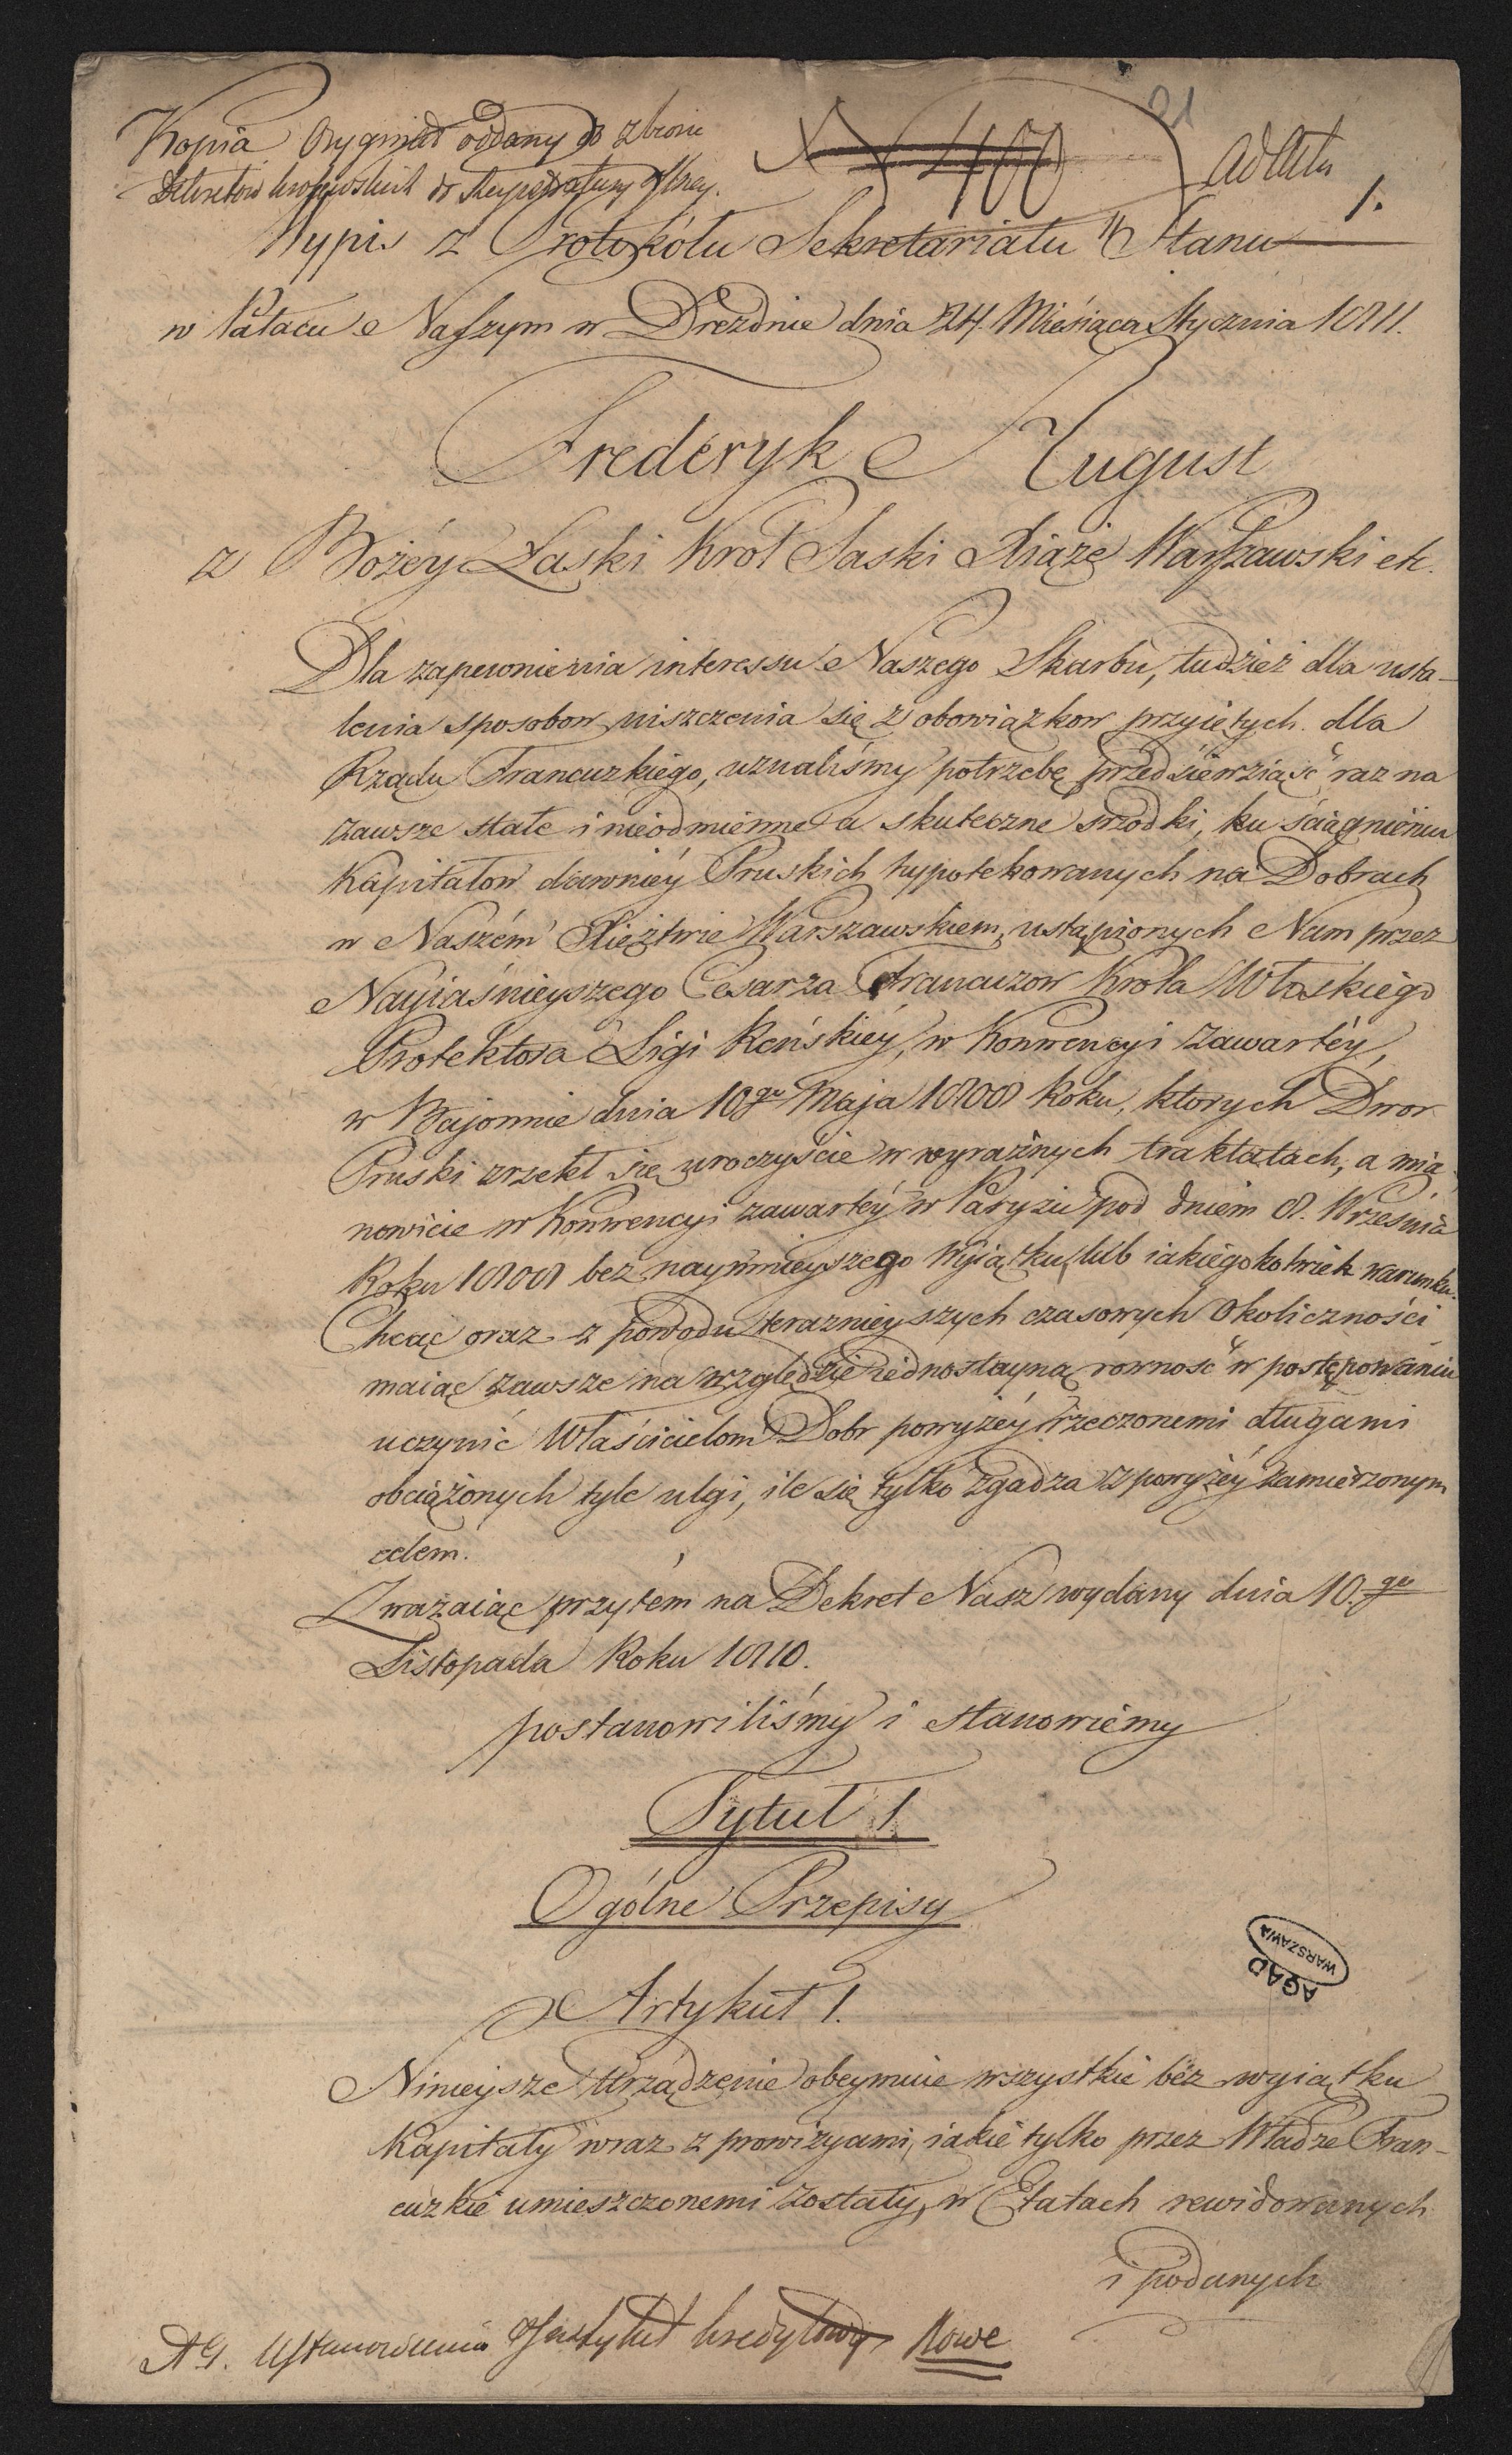 21
Kopia Oryginał oddany do zbioru
Dekretow krolewskich do
400
ad Acta
1.
Wypis z Protokółu Sekretariatu Stanu
w Pałacu Naszym w Dreznie dnia 24. Miesiąca Stycznia 1811.
Frederyk August
z Bożéy Łaski Krol Saski Xiąże Warszawski etc.
Dla zapewnienia interessu Naszego Skarbu, tudzież dla usta-
lenia sposobow uiszczenia się z obowiązkow przyiętych dla
Rządu Francuzkiego, uznaliśmy potrzebę przedsięwziąść raz na
zawsze stałe i nieodmienne a skuteczne srzodki, ku ściągnieniu
Kapitałow dawniéy Pruskich hypotekowanych na Dobrach
w Naszém Xięztwie Warszawskiem, ustąpionych Nam przez
Nayiaśnieyszego Cesarza Francuzow Krola Włoskiego
Protektora Ligi Reńskiéy, w Konwencyi zawartéy,
w Bajonnie dnia 10go Maja 1808 Roku, ktorych Dwor
Pruski zrzekł się uroczyście w wyraźnych traktatach, a mia-
nowicie w Konwencyi zawartéy w Paryżu pod dniem 8. Września
Roku 1808 bez naymnieyszego wyiątku lub iakiegokolwiek warunku.
Chcąc oraz z powodu teraznieyszych czasowych okoliczności
maiąc zawsze na względzie iednostayną rowność w postępowaniu
uczynić Właścicielom Dobr powyżéy rzeczonemi długami
obciążonych tyle ulgi, ile się tylko zgadza z powyżéy zamierzonym
celem.
Zważaiąc przytém na Dekret Nasz wydany dnia 10.go
Listopada Roku 1810.
postanowiliśmy i stanowiémy
Tytuł 1
Ogólne Przepisy
Artykuł 1.
Ninieysze Urządzenie obeymuie wszystkie bez wyiątku
Kapitały wraz z prowizyami, iakie tylko przez Władze Fran-
cuzkie umieszczonemi zostały, w Etatach rewidowanych
i podanych
AGAD
WARSZAWA
Instytut kredytowy Nowe